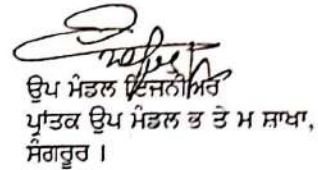 ਉਪ ਮੰਡਲ ਇੰਜਨੀਅਰ
ਪ੍ਰਾਂਤਕ ਉਪ ਮੰਡਲ ਭ ਤੇ ਮ ਸ਼ਾਖਾ,
ਸੰਗਰੂਰ ।